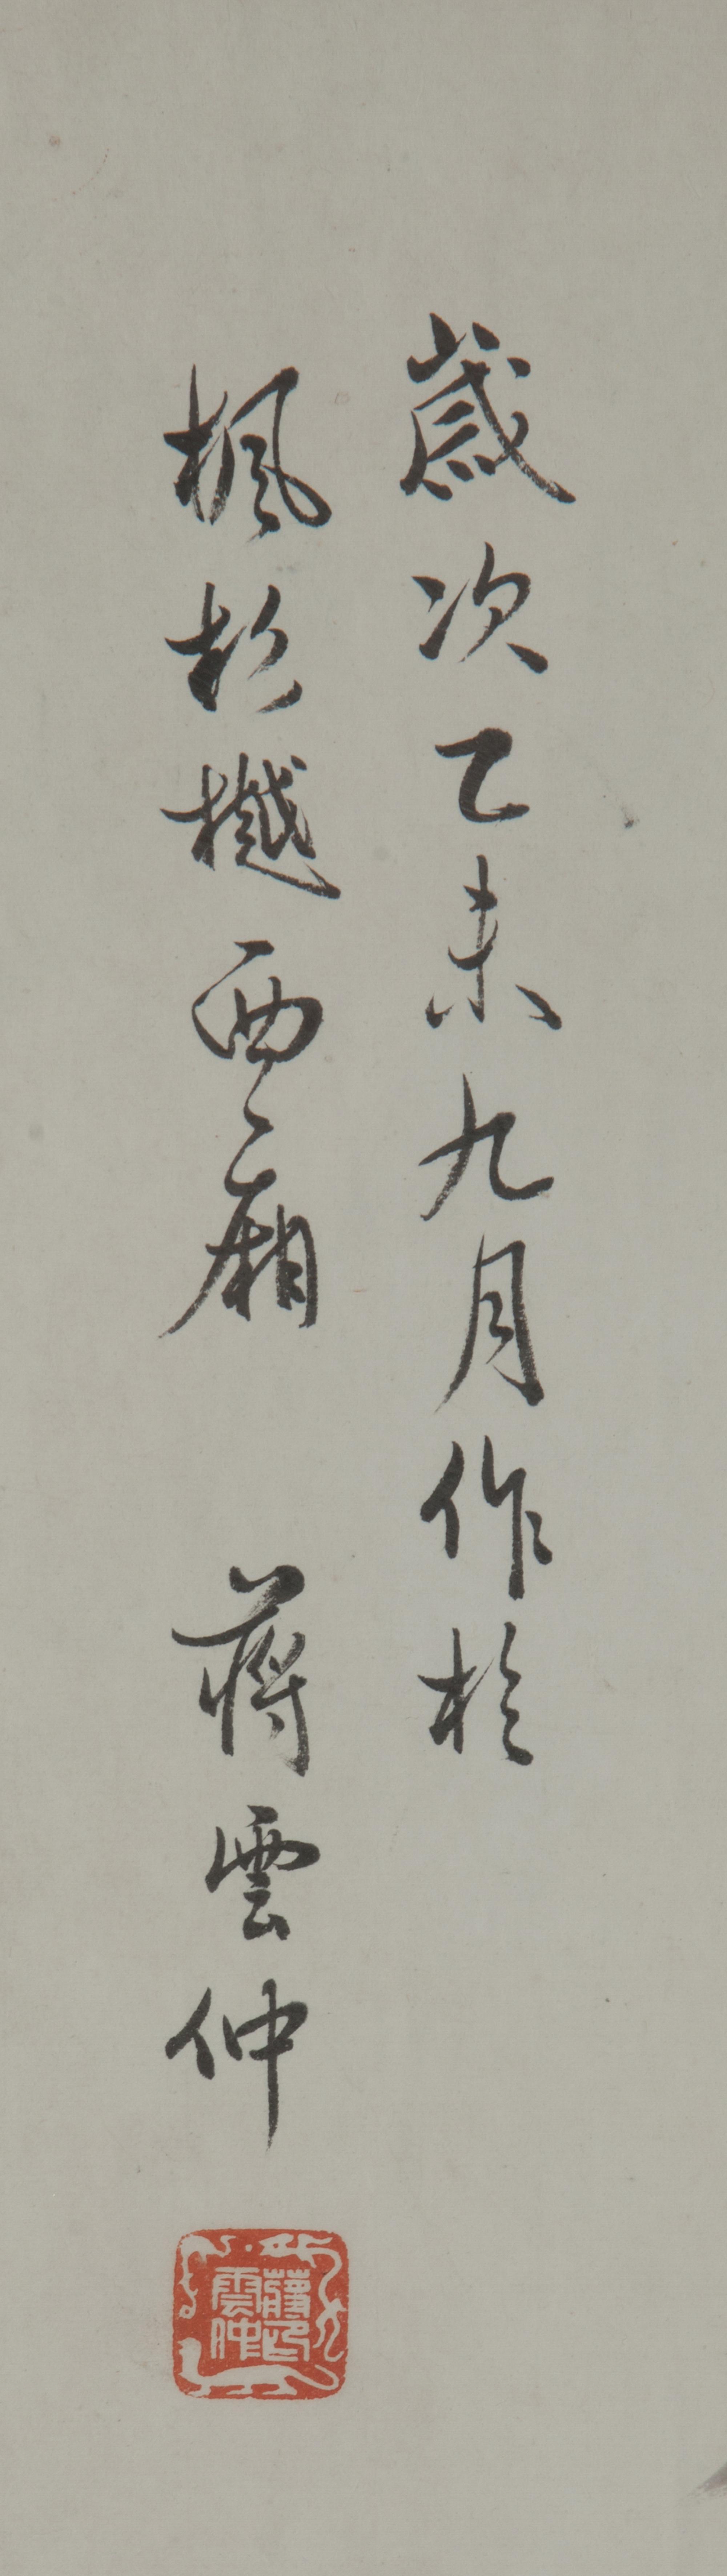 歲次乙未九月作於
楓杉樾西廂 蔣雲仲
蔣印雲仲